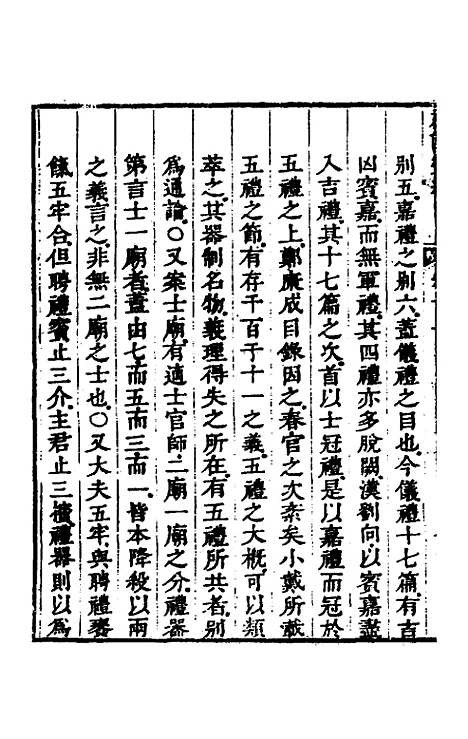 別五嘉禮之別六蓋儀禮之目也今儀禮十七篇有吉
凶賓嘉而無軍禮其四禮亦多脫闕漢劉向以賓嘉盡
入吉禮其十七篇之次首以士冠禮是以嘉禮而冠於
五禮之上鄭康成目錄因之春官之次紊矣小戴所載
五禮之節有存千百于十一之義五禮之大槪可以類
萃之其器制名物義理得失之所在有五禮所共者別
爲通論〇又案士廟有適士官師二廟一廟之分禮器
第言士一廟者蓋由七而五而三而一皆本降殺以兩
之義言之非無二廟之士也〇又大夫五牢與聘禮饔
餼五牢合但聘禮賓止三介主君止三擯禮器則以爲